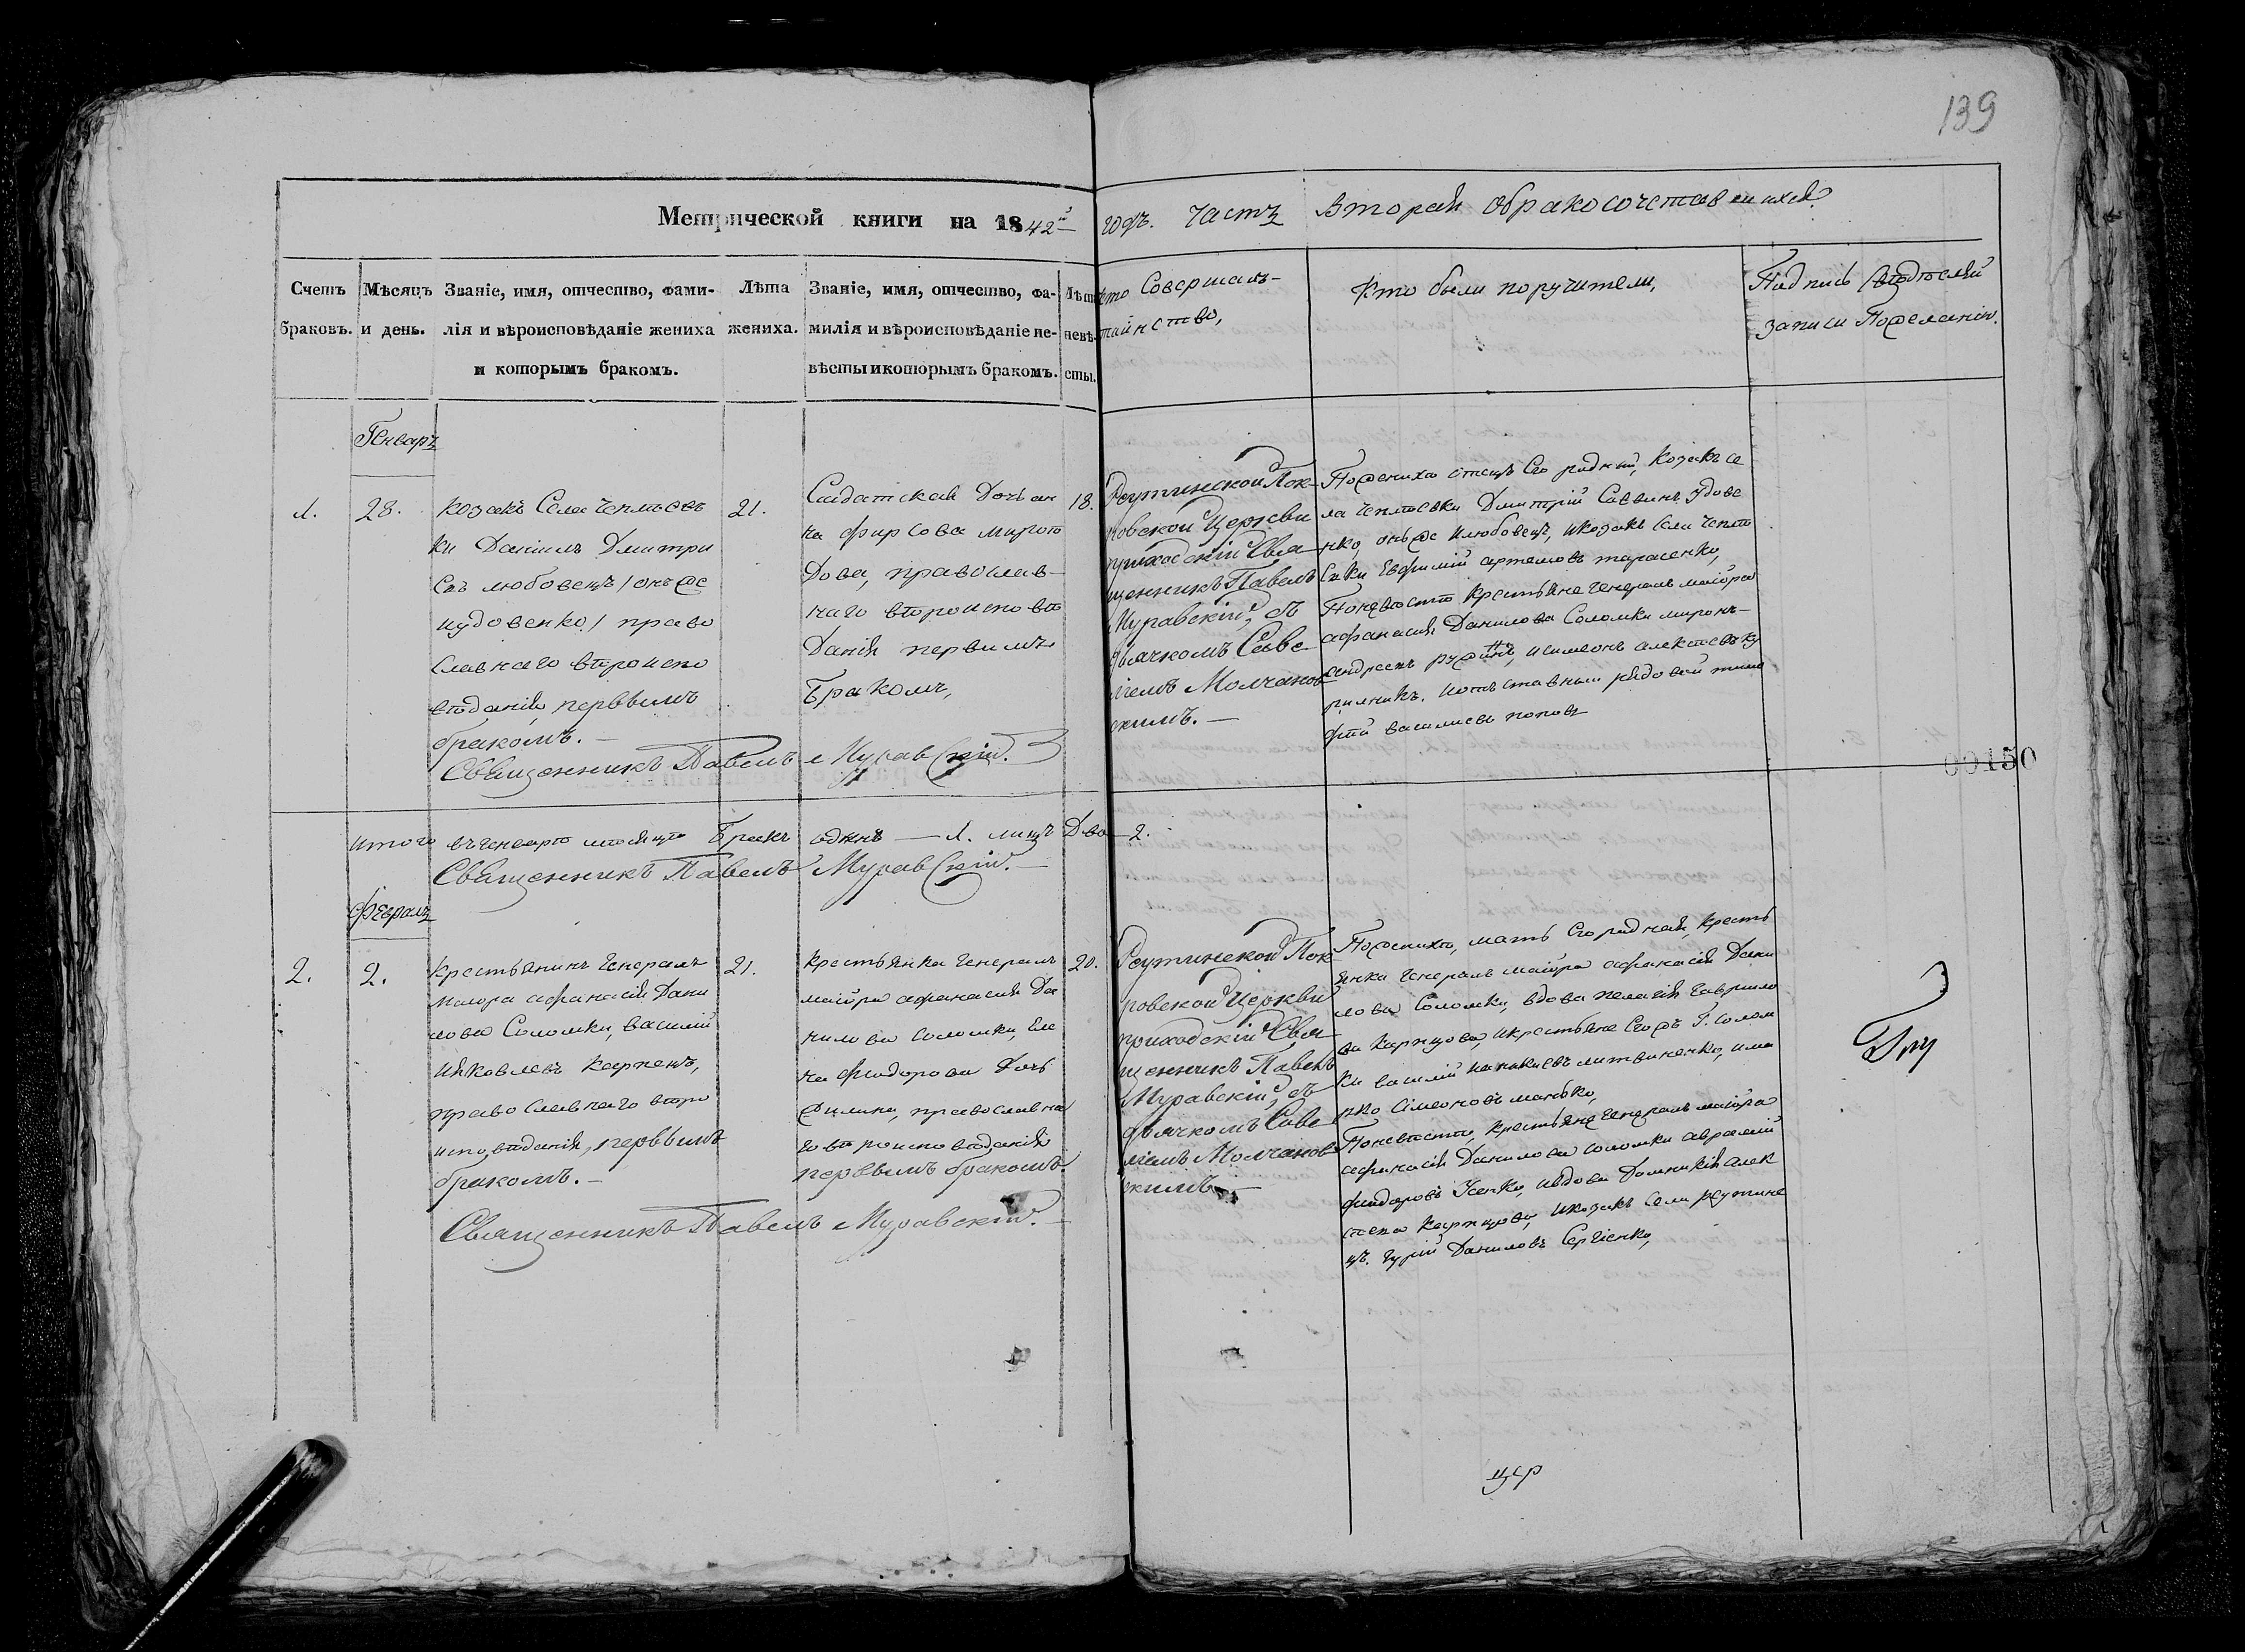 139
Метрической книги на 1842й годъ. Часть Вторая о бракосочетавшихся.
Счетъ браковъ.
Мѣсяцъ и день.
Званіе, имя, отчество, фами-
лія и вѣроисповѣданіе жениха
и которымъ бракомъ.
Лѣта
жениха.
Званіе, имя, отчество, фа-
милія и вѣроисповѣданіе не-
вѣсты и которымъ бракомъ.
Лѣта
невѣ-
сты.
Кто Совершалъ
таинство,
Кто были поручители,
Подпись Свѣдѣтелѣй
записи По желанію.
Генварь
1.
28.
козакъ Села Чеплѣев
ки Даніилъ Дмитри
евъ любовецъ /онъ же
удовенко/ право
славнаго вѣроиспо
вѣданія, первымъ
бракомъ. —
21.
Салдатская Дочь ан
на Фирсова
Дова, православ-
наго вѣроисповѣ
Данія первымъ
Бракомъ,
18.
Реутинской Пок-
ровской Церкви
приходскій Свя
щенникъ Павелъ
Муравскій, съ
дьячкомъ Саве
ліемъ Молчанов
скимъ. —
По женихѣ отецъ Его родный, Козакъ се
ла Чеплѣевки Дмитрій Саввинъ удове
нко, онъ же и любовецъ, и козакъ Села Чеплѣ
Евки Евфимій артемовъ тарасенко,
По невѣстѣ Крестьяне Генералъ маіора
афанасія Данилова Соломки миронъ
андреевъ и симеонъ алексѣевъ
и отъставный рядовой тимо
фѣй василіевъ поповъ
Священникъ Павелъ Муравскій.
00150
Итого въ генварѣ мѣсяцѣ Бракъ одинъ — 1. лицъ Два — 2.
Священникъ Павелъ Муравскій. —
Февраль
2.
2.
Крестьянинъ Генералъ
Маіора афанасія Дани
лова Соломки, василій
Іяковлевъ Карпецъ,
православнаго вѣро
исповѣданія, первымъ
бракомъ. —
21.
Крестьянка Генералъ
маіора афанасія Да
нилова Соломки, Еле
на Фиодорова Дочь
православна
го вѣроисповѣданія
первымъ бракомъ.
20.
Реутинской Пок
ровской Церкви
приходскій Свя
щенникъ Павелъ
Муравскій, съ
дьячкомъ Саве
ліемъ Молчанов
скимъ —
По женихѣ, мать Его родная, Кресть
янка Генералъ маіора афанасія Дани
лова Соломки, вдова пелагія гаврило
ва Карпцова, и крестьяне Его жъ Г. Солом
ки василій литвиненко, и ма
рко Симеоновъ манько,
По невѣстѣ, крестьяне Генералъ маіора
афанасія Данилова Соломки аврамій
фиодоровъ Усенко, и вдова Домникія алек
сѣева Карпцова, и козакъ Села реутине
цъ гурій Даниловъ Сергіенко,
Священникъ Павелъ Муравскій. —